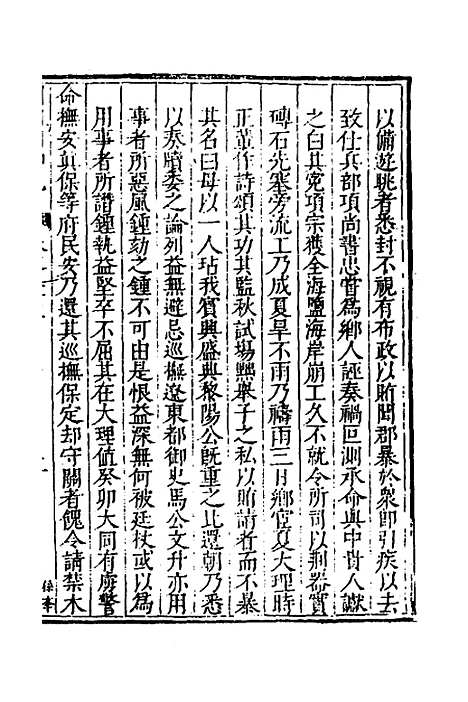 以備遊眺者悉封不視有布政以賄聞郡暴於衆即引疾以去
致仕兵部項尚書忠嘗爲鄉人誣奏禍叵測承命與中貴人讞
之白其寃項宗獲全海鹽海岸崩工久不就令所司以剩器實
磚石先塞旁流工乃成夏旱不雨乃禱雨三日鄉宦夏大理時
正輩作詩頌其功其監秋試場黜舉子之私以賄請者而不暴
其名曰毋以一人玷我賓興盛典黎陽公旣重之比還朝乃悉
以奏牘委之論列益無避忌巡撫遼東都御史馬公文升亦用
事者所惡風鍾劾之鍾不可由是恨益深無何被廷杖或以爲
用事者所譖鍾執益堅卒不屈其在大理值癸卯大同有虜警
命撫安眞保等府民安乃還其巡撫保定却守關者餽令請禁木